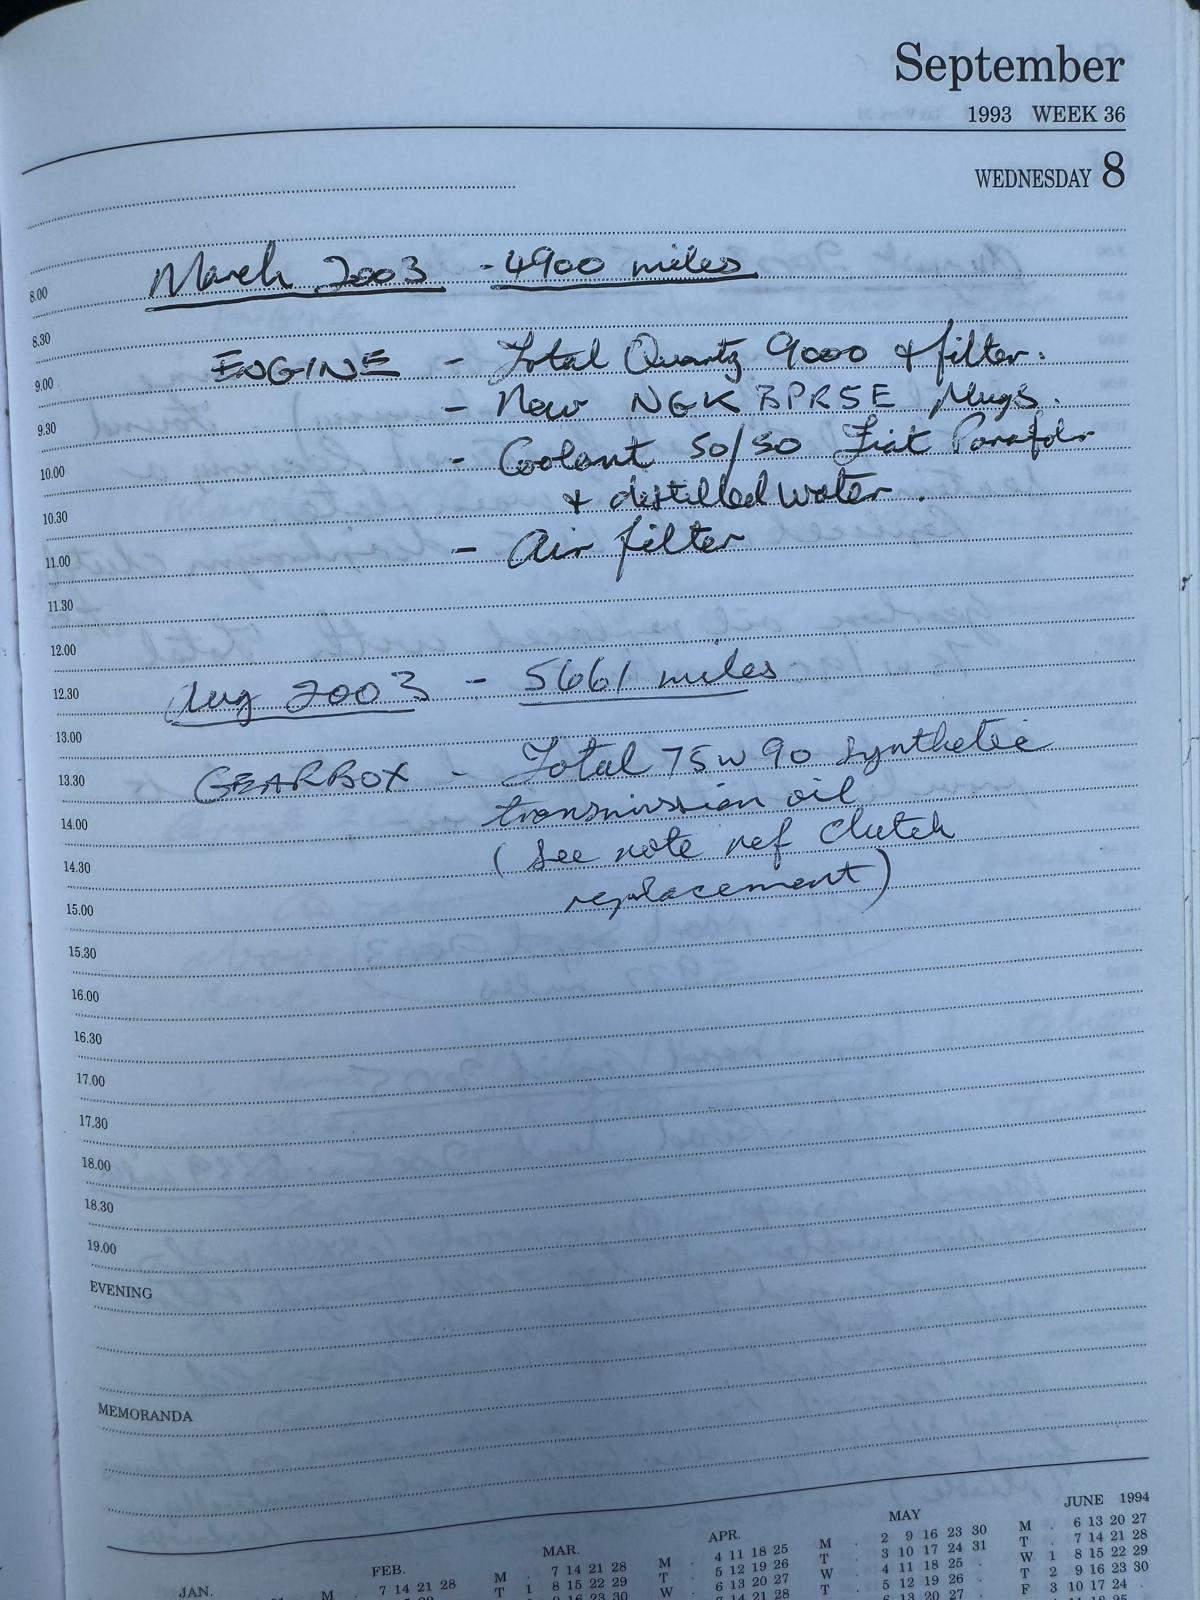 September
1993 WEEK 36
WEDNESDAY 8
March 2003 - 4900 miles
8.00
8.30
ENGINE - Total Quartz 9000 & filter.
9.00
- New NGK BPR5E Plugs.
9.30
- Coolant 50/50 Fiat Paraflu
10.00
& distilled water.
10.30
- Air filter
11.00
11.30
12.00
Aug 2003 - 5661 miles
12.30
13.00
GEARBOX - Total 75w90 Synthetic
13.30
transmission oil
14.00
(See note ref Clutch
14.30
replacement)
15.00
15.30
16.00
16.30
17.00
17.30
18.00
18.30
19.00
EVENING
MEMORANDA
JAN.
FEB.
M . 7 14 21 28
MAR.
M . 7 14 21 28
T 1 8 15 22 29
APR.
M . 4 11 18 25
T . 5 12 19 26
W . 6 13 20 27
MAY
M . 2 9 16 23 30
T . 3 10 17 24 31
W . 4 11 18 25 .
T . 5 12 19 26 .
JUNE 1994
M . 6 13 20 27
T . 7 14 21 28
W 1 8 15 22 29
T 2 9 16 23 30
F 3 10 17 24 .